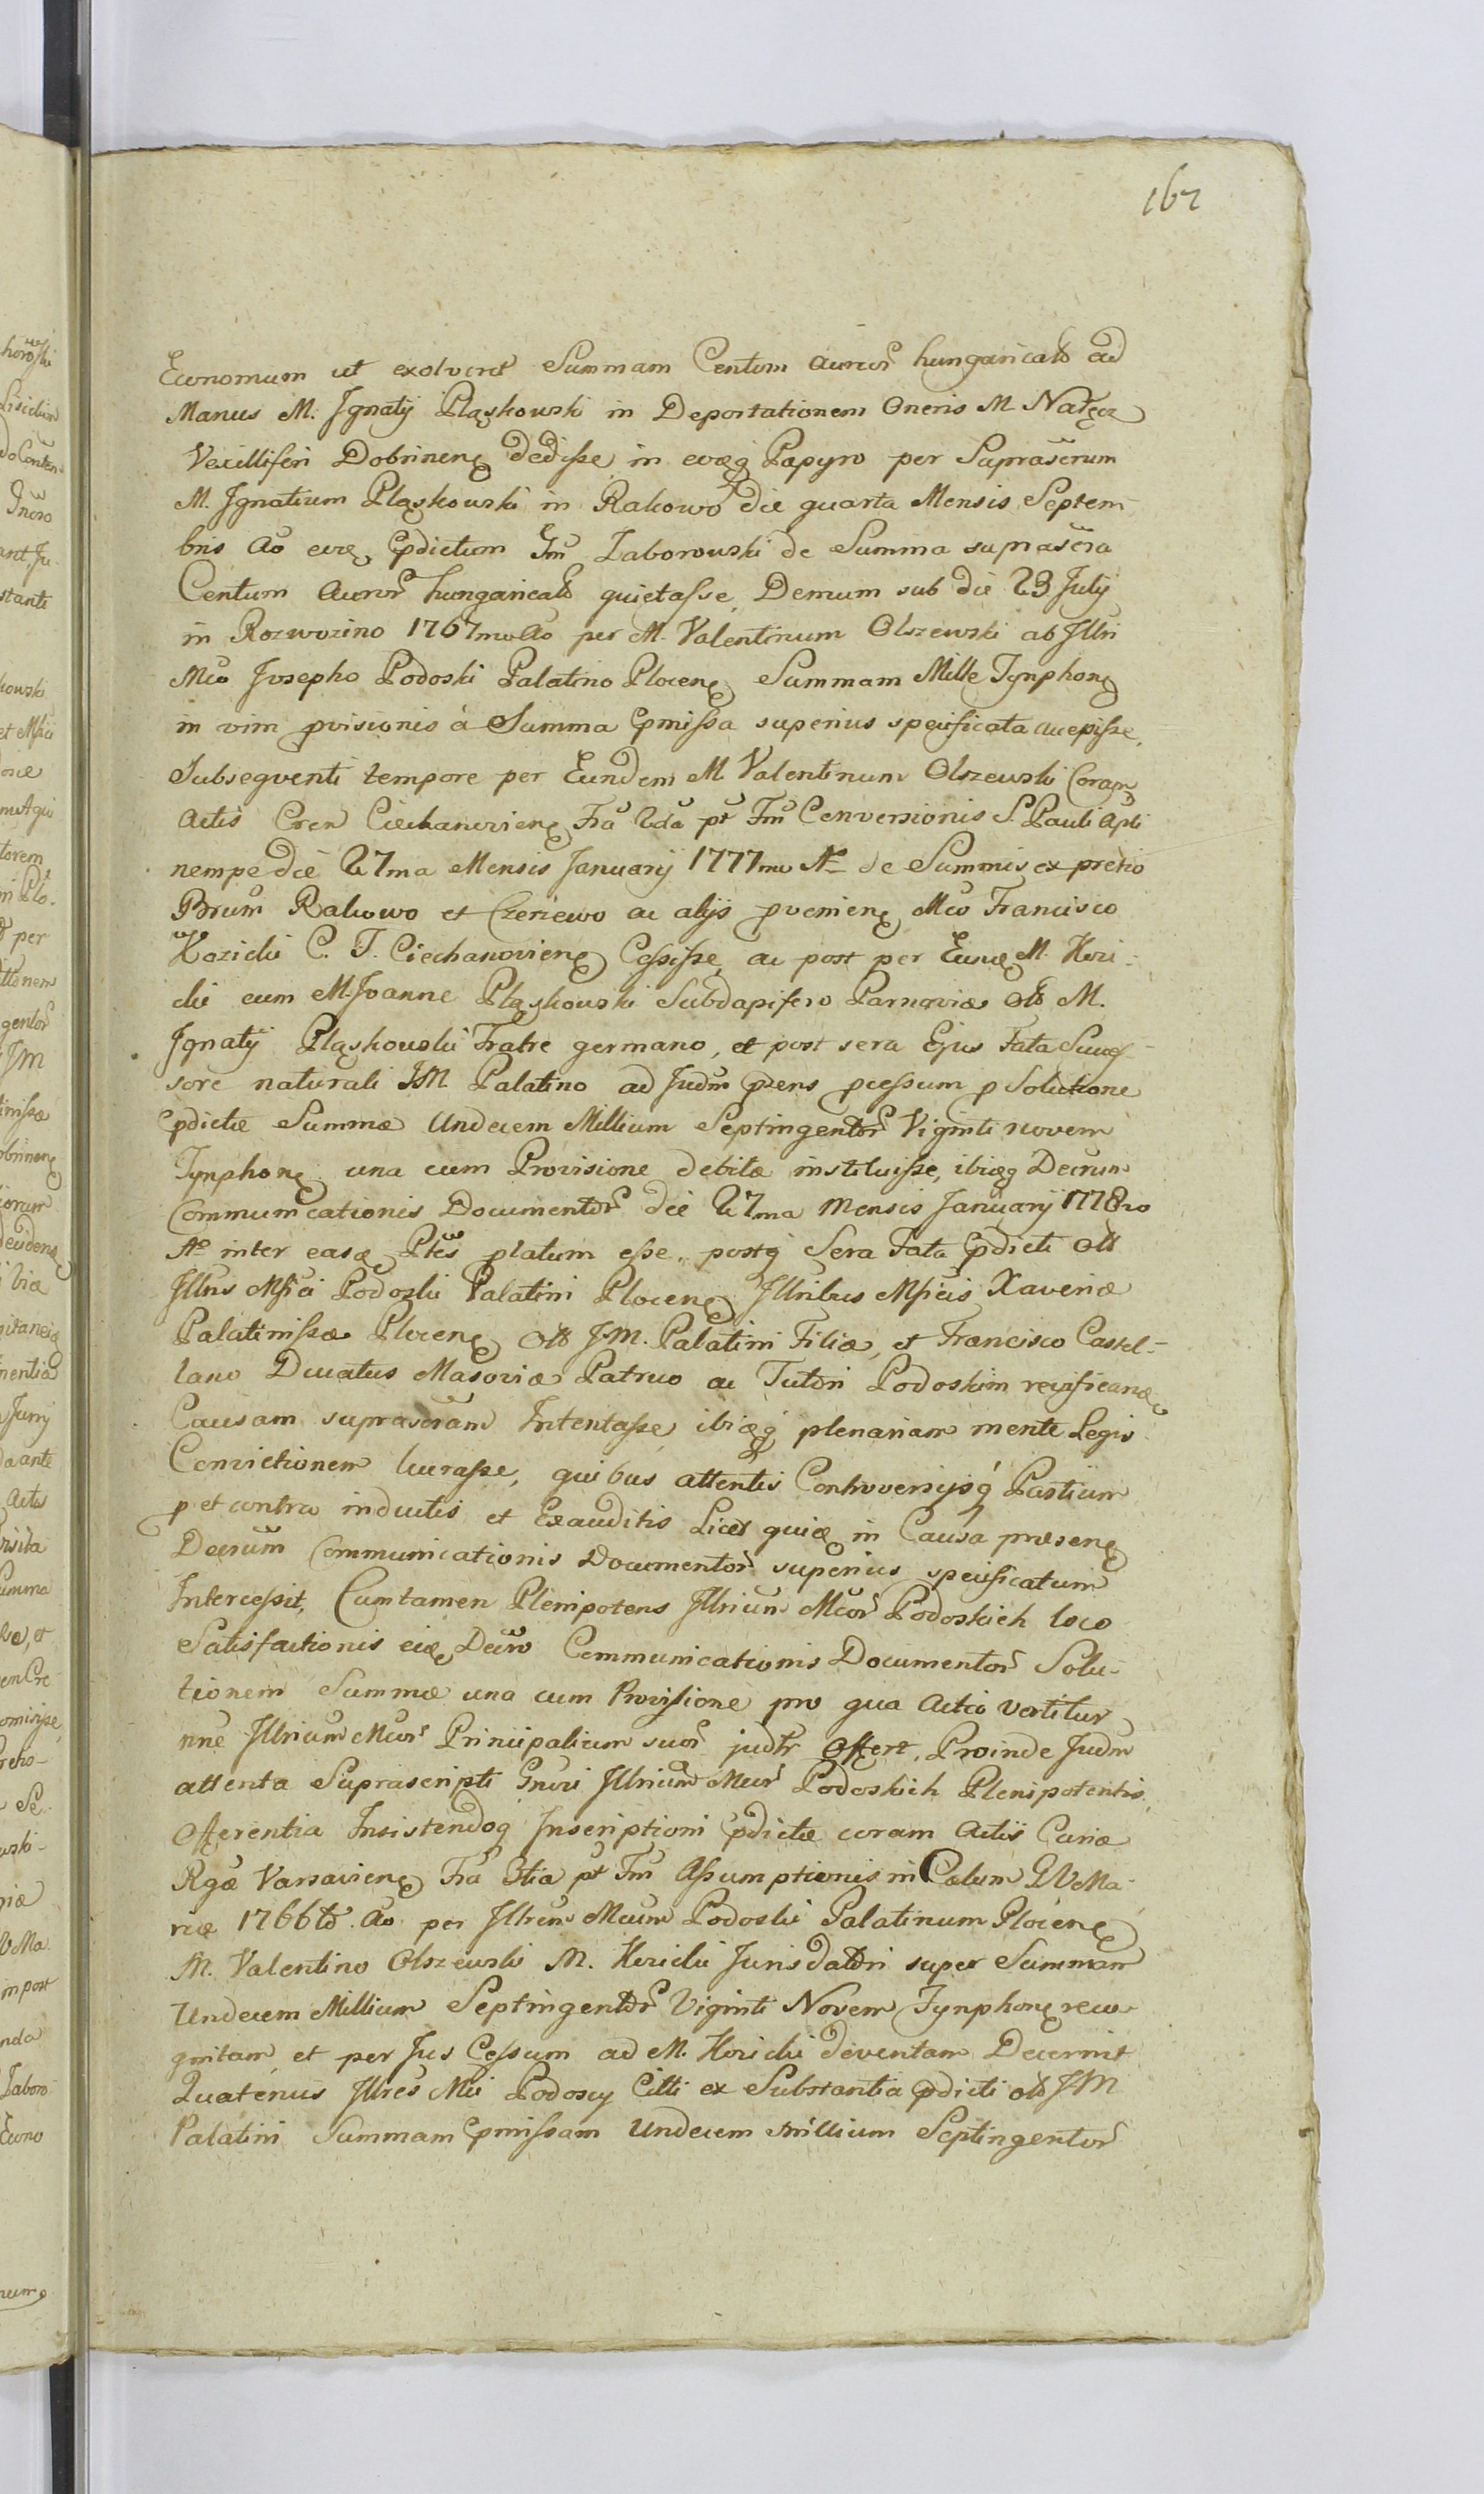 167
Economum ut exolveret Summam Centum aureor hungaricaliũ ad
Manus M. Ignatij Pląskowski in Deportationem Oneris M Nałęcz
Vexilliferi Dobrinenς dedisse in evæq Papyro per Suprascrum
M. Ignatium Pląskowski in Rakowo die quarta Mensis Septem-
bris Ao eoe, pdictum Gm Zaborowski de Summa suprascra
Centum Aureor hungaricaliũ quietasse, Demum sub die 23 July
in Rozwozino 1767mo Ao per M. Valentinum Olszewski ab Illri
Mco Josepho Podoski Palatino Plocenς Summam Mille Tynphonς
in vim pvisionis à Summa pmissa superius specificata accepisse,
Subsequenti tempore per Eundem M. Valentinum Olszewski Coram
Actis Cren Ciechanovienς Fra 2da pt Fm Conversionis S. Pauli Apli
nempe die 27ma Mensis January 1777mo Ao de Summis ex pretio
Brum Rakowo et Czeriewo ac alijs pvenienς Mco Francisco
Kozicki C. T. Ciechanovienς Cessisse, ac post per Eunde M. Kozi-
cki cum M. Joanne Pląskowski Subdapifero Parnaviæ olim M.
Ignatij Pląskowski Fratre germano, et post sera Ejus Fata Succes-
sore naturali IM Palatino ad Judm pzens pcessum p Solutione
pdictæ Summæ Undecem Millium Septingentor Viginti novem
Tynphonς una cum Provisione debitæ instituisse, ibiæq Decrum
Communicationis Documentor die 27ma Mensis January 1778vo
Ao inter easæ Ptes platum esse, postq Sera Fata pdicti olim
Illris Mfici Podoski Palatini Plocenς Illribus Mficis Xaveriæ
Palatinissæ Plocenς olim J.M. Palatini Filiæ, et Francisco Castel-
lano Ducatus Masoviæ Patruo ac Tutori Podoskim
Causam suprascram Intentasse, ibiæq plenariam mente Legis
Convictionem lucrasse, quibus attentis Controversijsq Partium
p et contra inductis et Exauditis Licet quidæ in Causa præsenς
Decrum Communicationis Documentor superius specificatum
Intercessit, Cum tamen Plenipotens Illrium Mcor Podoskich loco
Satisfactionis eidæ Decro Communicationis Documentor Solu-
tionem Summæ una cum Provisione pro qua Actio vertitur
nne Illrium Mcor Principalium suor judtr offert, Proinde Judm
attenta Suprascripti Gnrosi Illrium Mcor Podoskich Plenipotentis
Offerentia Insistendoq Inscriptioni pdictæ coram Actis Curiæ
Rgæ Varsavienς Fra 3tia pt Fm Assumptionis in Cœlum BVMa-
riæ 1766to Ao per Illrem Mcum Podoski Palatinum Plocenς
M. Valentino Olszewski M. Kozicki Jurisdatori super Summam
Undecem Millium Septingentor Viginti Novem Tynphonς reco-
gnitam, et per Jus Cessum ad M. Kozicki deventam Decernit
Quatenus Illres Mci Podoscy Citti ex Substantia pdicti olim JM
Palatini Summam pmissam Undecem millium Septingentor